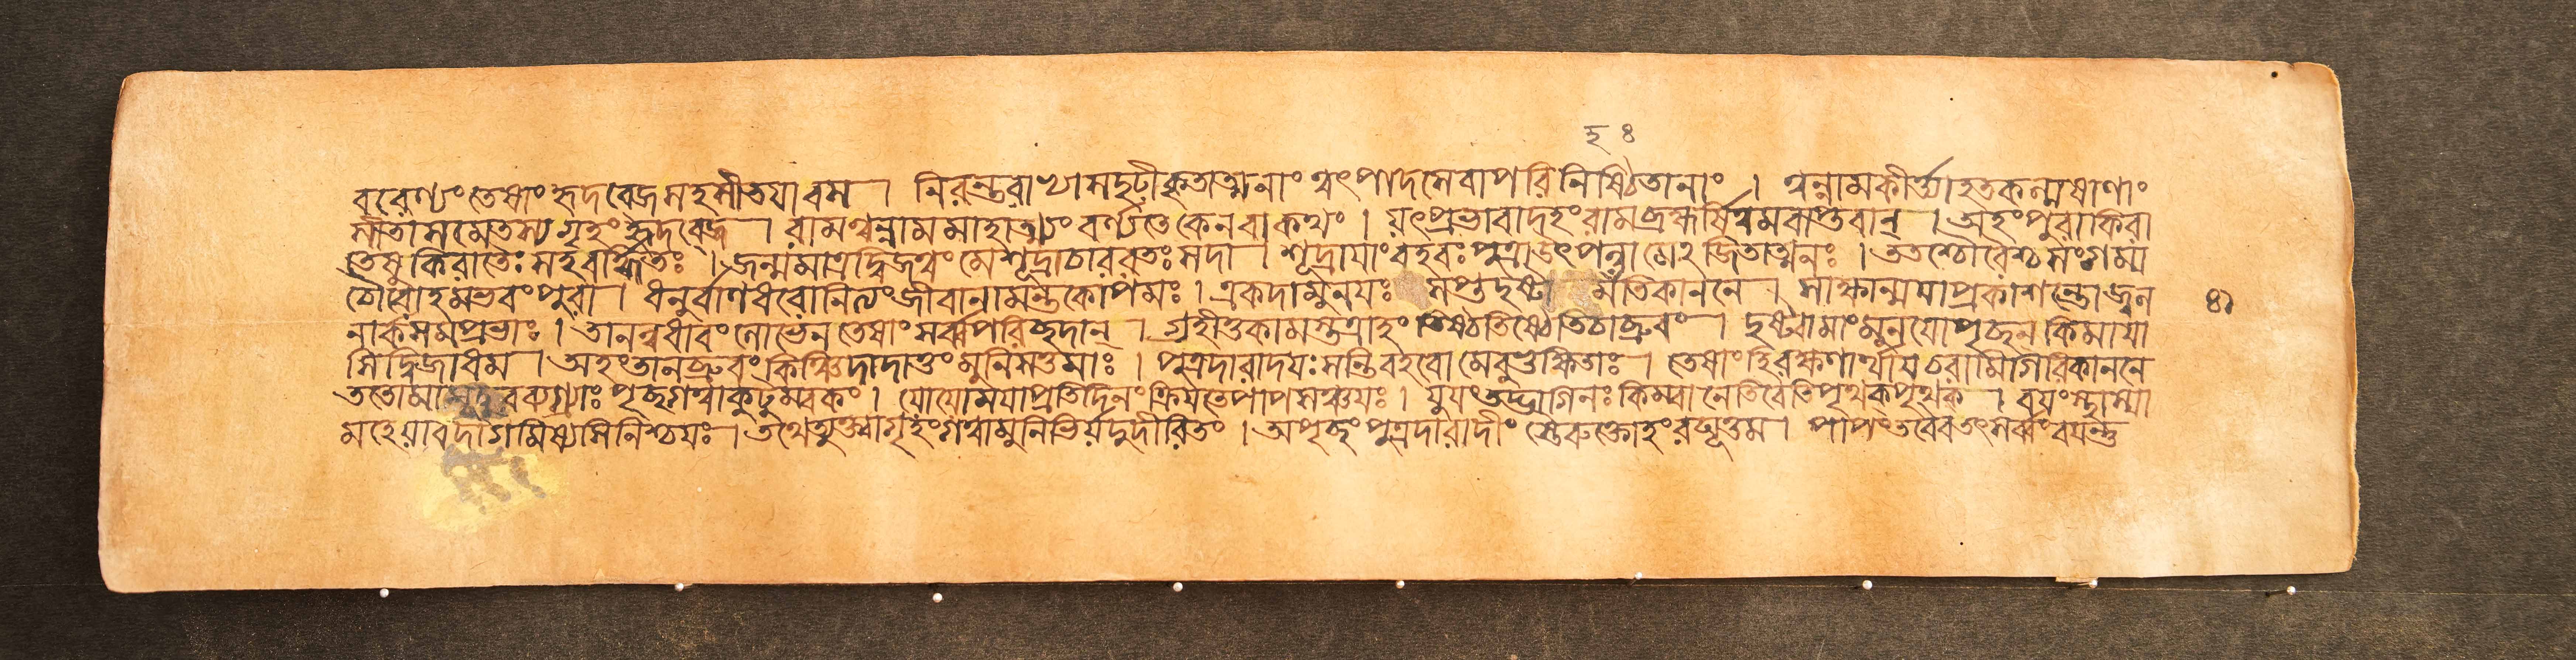 বরেণ্যং তেষাং হৃদবেজ্রমহমীতযাবম । নিরন্তরাভ্যাসদৃঢীকৃতাত্মনাং ত্বৎপাদসেবাপরিনিষ্ঠিতানাং । ত্বন্নামকীর্ত্ত্যাহতকল্মষাণাং
সীতাসমেতস্য গৃহং হৃদব্জে । রামত্বন্নামমাহাত্ম্যং বর্ণ্যতে কেন বা কথং । যৎপ্রভাবাদহং রামব্রহ্মর্ষিত্বমবাপ্তবান্ । অহং পুরা কিরা
তেষু কিরাতৈঃ সহ বর্দ্ধিতঃ । জন্মমাত্রদ্বিজত্বং মে শূদ্রাচাররতঃ সদা । শূদ্রাযাং বহবঃ পুত্রা উৎপন্না মেঽজিতাত্মনঃ । ততশ্চৌরৈশ্চ সংগম্য
চৌরোহমভবং পুরা । ধনুর্বাণধরো নিত্যং জীবানামন্তকোপমঃ । একদা মুনযঃ সপ্ত দৃষ্টা মহতি কাননে । সাক্ষান্মযা প্রকাশন্তো জ্বল ৪১
নার্কসমপ্রভাঃ । তানন্বধাবং লোভেন তেষাং সর্ব্বপরিচ্ছদান্ । গ্রহীতুকামস্তত্রাহং তিষ্ঠতিষ্ঠেতি চাব্রুবং । দৃষ্ট্বা মাং মুনযোপৃচ্ছন কিমাযা
সি দ্বিজাধম । অহং তানব্রুবং কিঞ্চিদাদাতুং মুনিসত্তমাঃ । পুত্রদারাদযঃ সন্তি বহবো মে বুভুক্ষিতাঃ । তেষাং হি রক্ষণার্থায চরামি গিরিকাননে
ততো মামূচুরব্যগ্রাঃ পৃচ্ছ গত্বা কুটুম্বকং । যো যো মযা প্রতিদিনং ক্রিযতে পাপসঞ্চযঃ । যুযং তদ্ভাগিনঃ কিম্বা নেতি বেতি পৃথক পৃথক । বযং স্থাস্যা
মহেযাবদাগমিষ্যসি নিশ্চযঃ । তথেত্যুক্ত্বা গৃহং গত্বা মুনিভির্যদুদীরিতং । অপৃচ্ছং পুত্রদারাদীং স্তৈরুক্তোহং রঘূত্তম । পাপং তবৈব তৎসর্ব্বং বযন্তু